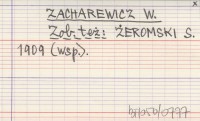 ZACHAREWICZ W.
Zob. też: ŻEROMSKI S.
1909 (wsp.).